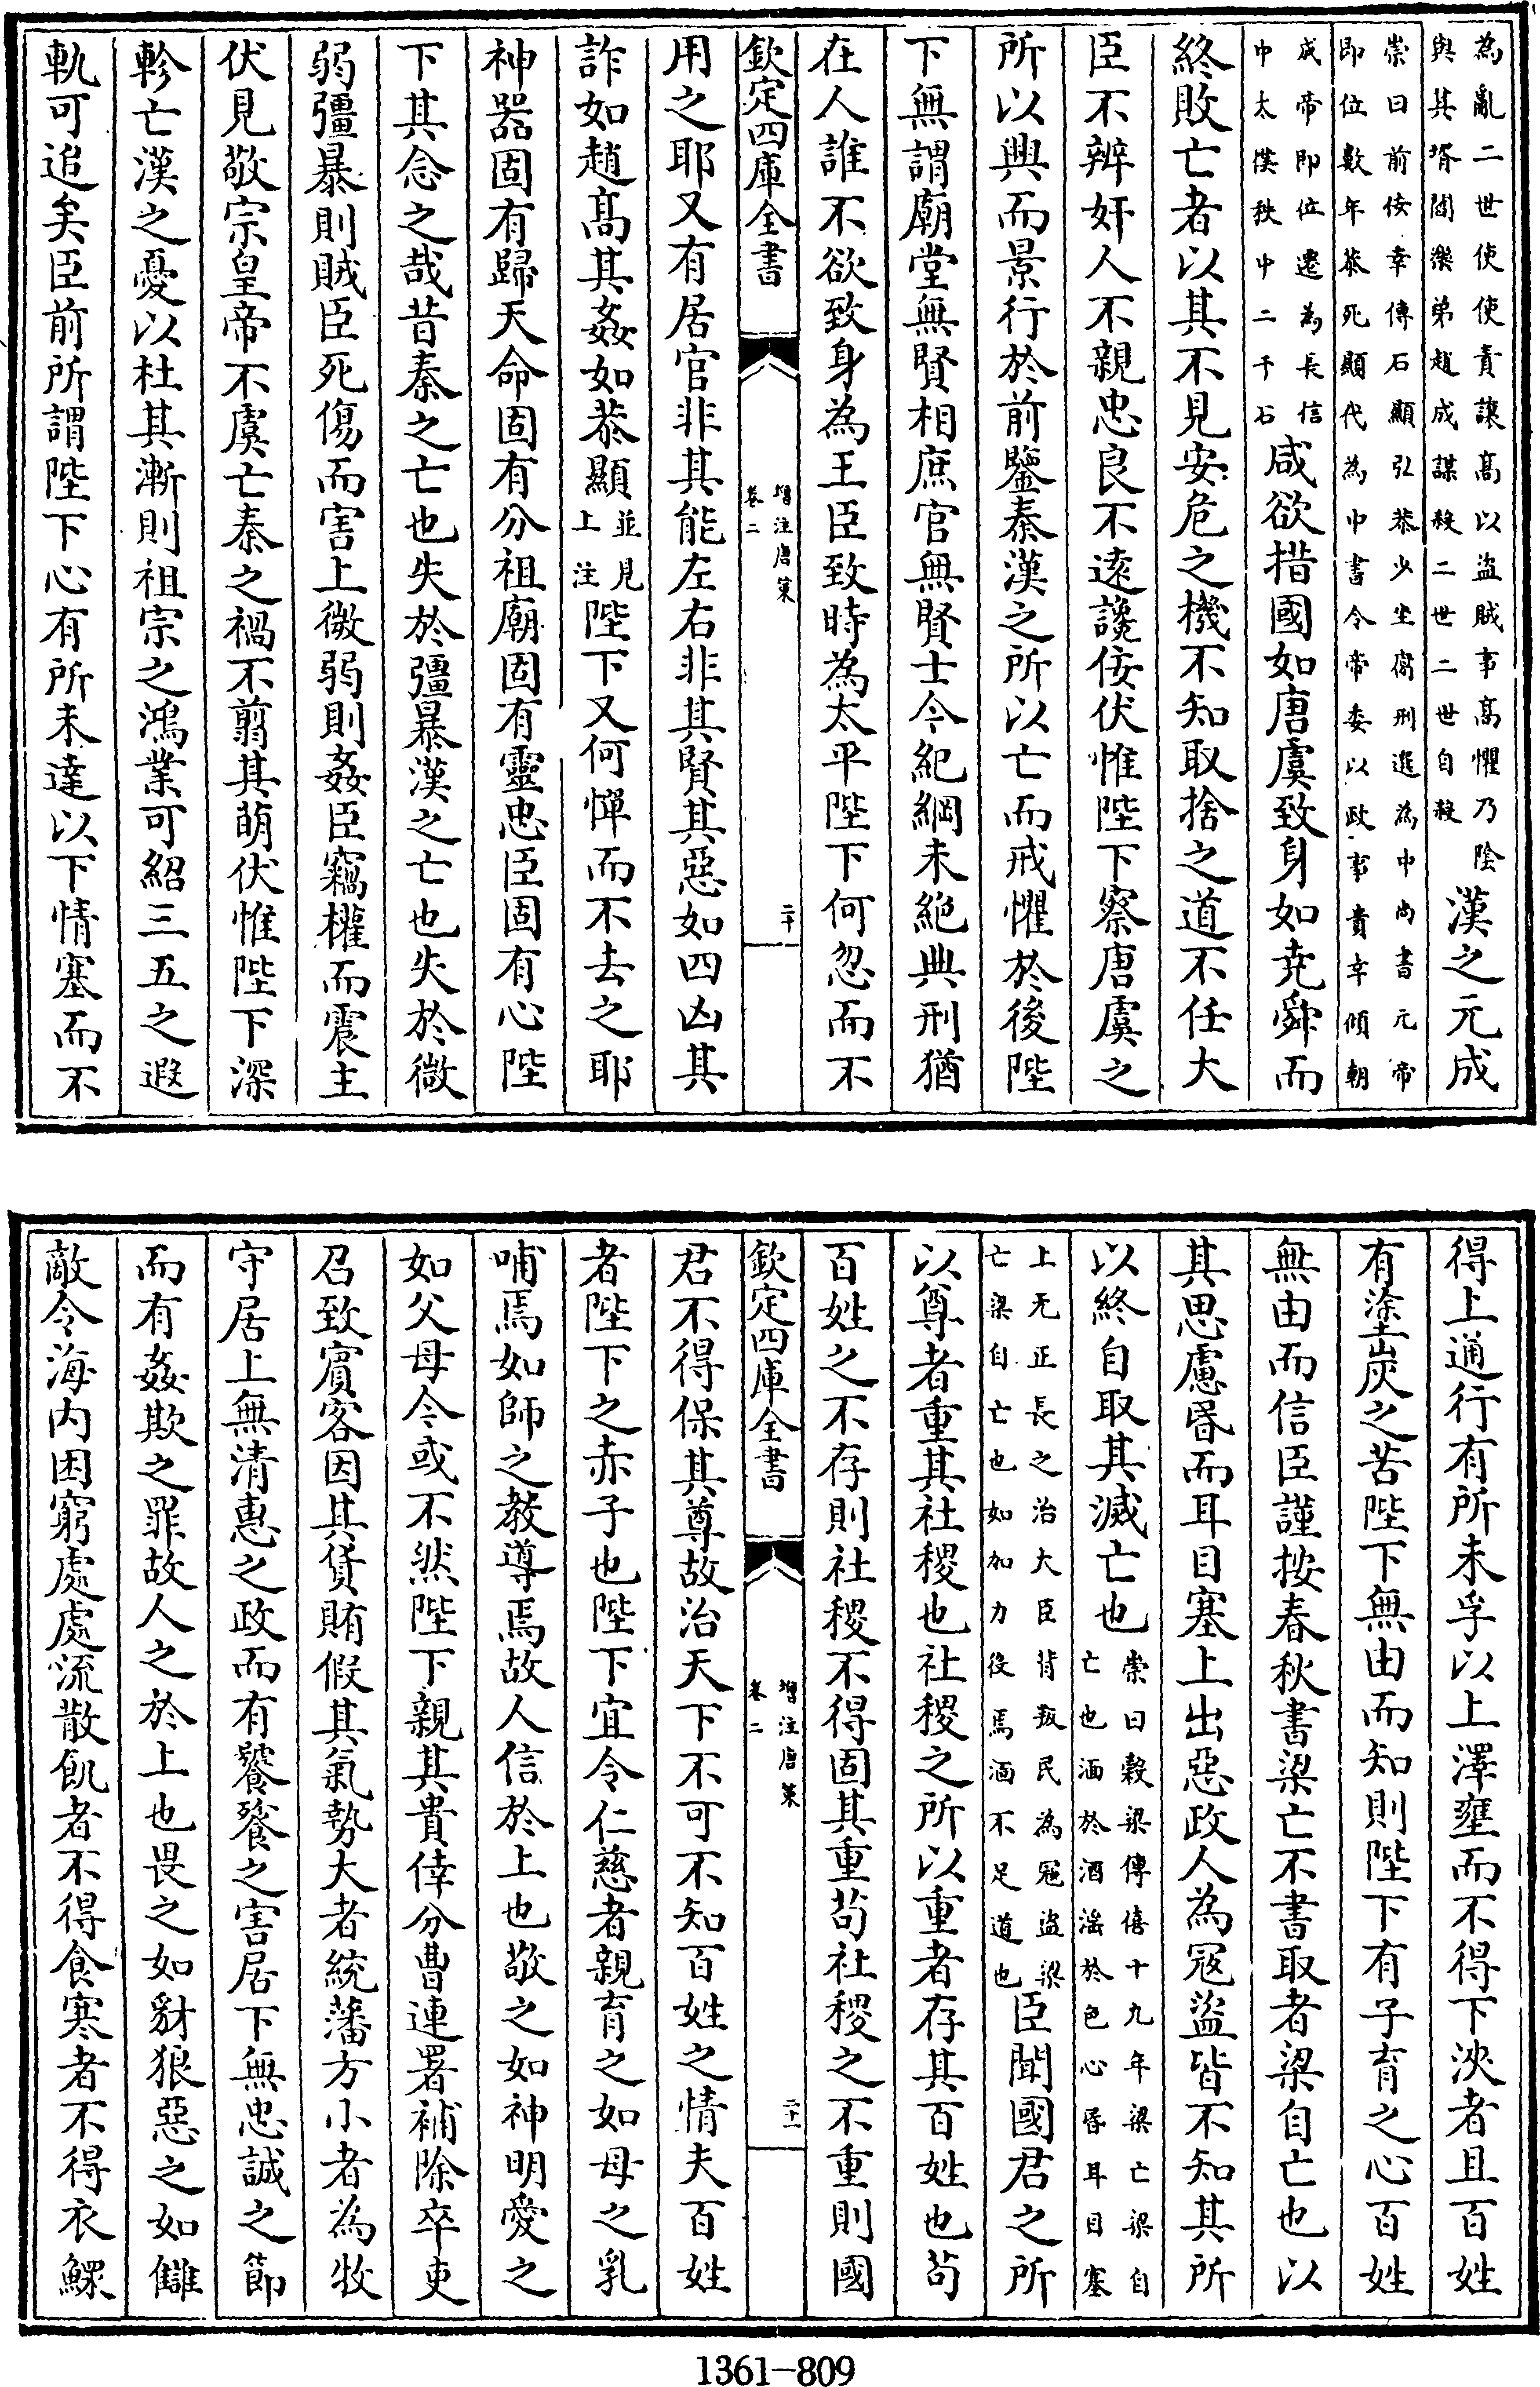 為亂二世使使責讓髙以盜賊事髙懼乃陰
與其壻閻樂弟趙成謀殺二世二世自殺
漢之元成
崇曰前佞幸傳石顯弘恭少坐腐刑選為中尚書元帝
即位數年恭死顯代為中書令帝委以政事貴幸傾朝
成帝即位遷為長信
中太僕秩中二千石
咸欲措國如唐虞致身如堯舜而
終敗亡者以其不見安危之機不知取捨之道不任大
臣不辨奸人不親忠良不逺讒佞伏惟陛下察唐虞之
所以興而景行於前鑒秦漢之所以亡而戒懼於後陛
下無謂廟堂無賢相庶官無賢士今紀綱未絶典刑猶
在人誰不欲致身為王臣致時為太平陛下何忽而不
欽定四庫全書
增注唐策
卷二
二十
用之耶又有居官非其能左右非其賢其惡如四凶其
詐如趙髙其姦如恭顯
並見
上注
陛下又何憚而不去之耶
神器固有歸天命固有分祖廟固有靈忠臣固有心陛
下其念之哉昔秦之亡也失於彊暴漢之亡也失於微
弱彊暴則賊臣死傷而害上微弱則姦臣竊權而震主
伏見敬宗皇帝不虞亡秦之禍不翦其萌伏惟陛下深
軫亡漢之憂以杜其漸則祖宗之鴻業可紹三五之遐
軌可追矣臣前所謂陛下心有所未達以下情塞而不
得上通行有所未孚以上澤壅而不得下浹者且百姓
有塗炭之苦陛下無由而知則陛下有子育之心百姓
無由而信臣謹按春秋書梁亡不書取者梁自亡也以
其思慮昬而耳目塞上出惡政人為冦盜皆不知其所
以終自取其滅亡也
崇曰榖梁傳僖十九年梁亡梁自
亡也湎於酒淫於色心昬耳目塞
上无正長之治大臣背叛民為冦盜梁
亡梁自亡也如加力役焉湎不足道也
臣聞國君之所
以尊者重其社稷也社稷之所以重者存其百姓也茍
百姓之不存則社稷不得固其重茍社稷之不重則國
欽定四庫全書
增注唐策
卷二
二十一
君不得保其尊故治天下不可不知百姓之情夫百姓
者陛下之赤子也陛下宜令仁慈者親育之如母之乳
哺焉如師之教導焉故人信於上也敬之如神明愛之
如父母今或不然陛下親其貴倖分曹連署補除卒吏
召致賓客因其貨賄假其氣勢大者統藩方小者為牧
守居上無清惠之政而有饕餮之害居下無忠誠之節
而有姦欺之罪故人之於上也畏之如豺狼惡之如讎
敵今海内困窮處處流散飢者不得食寒者不得衣鰥
1361-809